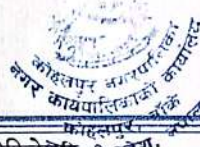 कोहलपुर नगरपालिका
नगर कार्यपालिकाको कार्यालय
कोहलपुर, बाँके
नेपाल